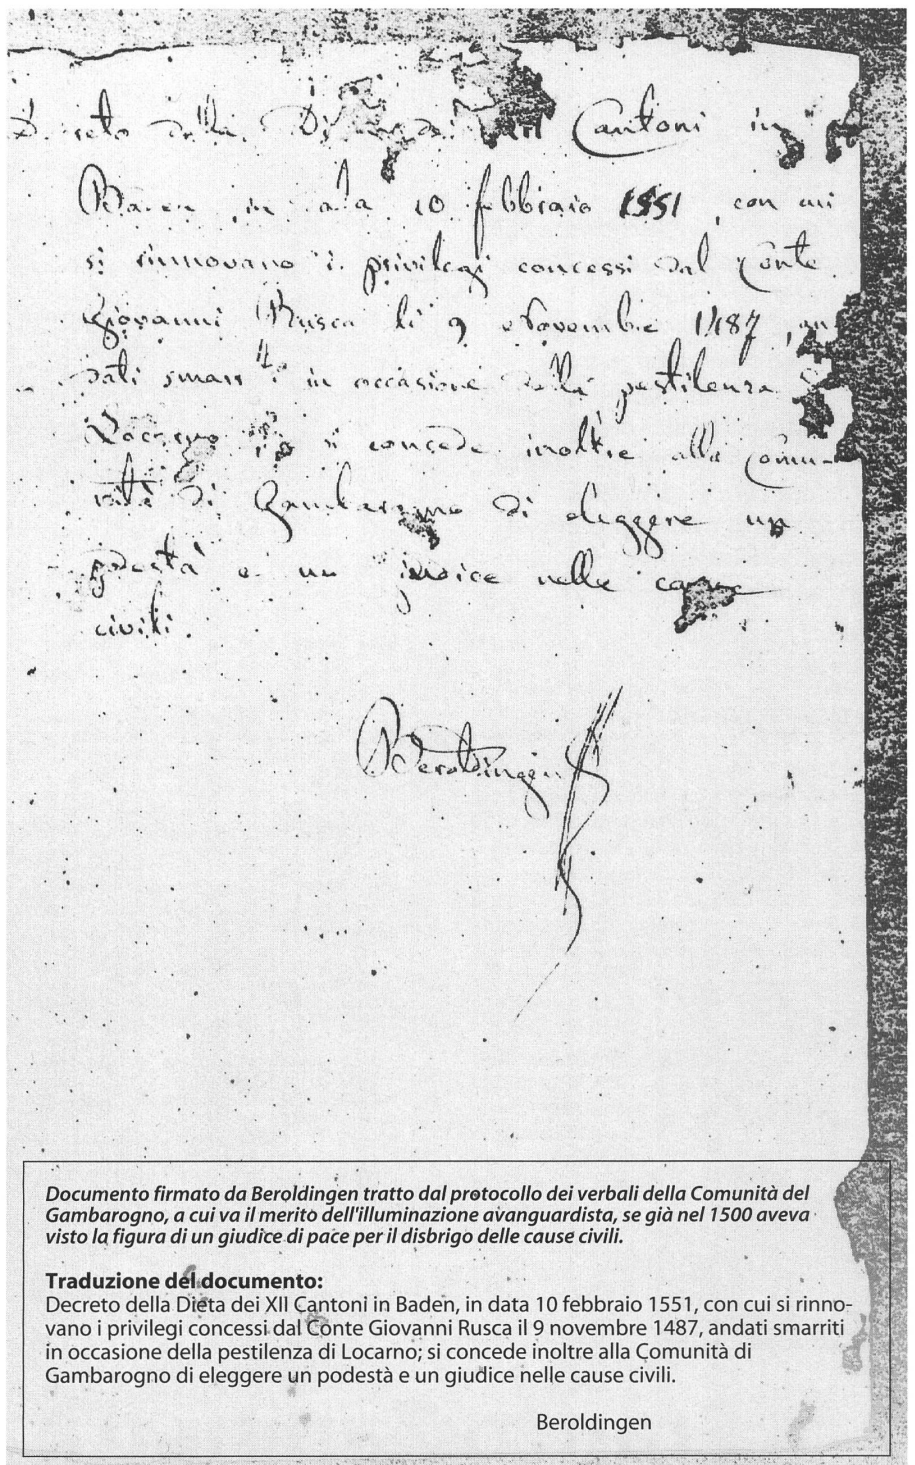 Decreto della Dieta dei XII Cantoni in
Baden in data 10 febbraio 1551, con cui
si rinnovano i privilegi concessi dal Conte
Giovanni Rusca li 9 Novembre 1487, an-
dati smarriti in occasione della pestilenza
Locarno si concede inoltre alla Comu-
nità di Gambarogno di eleggere un
podestà e un giudice nelle cause
civili.
Beroldingen
Documento firmato da Beroldingen tratto dal protocollo dei verbali della Comunità del
Gambarogno, a cui va il merito dell'illuminazione avanguardista, se già nel 1500 aveva
visto la figura di un giudice di pace per il disbrigo delle cause civili.
Traduzione del documento:
Decreto della Dieta dei XII Cantoni in Baden, in data 10 febbraio 1551, con cui si rinno-
vano i privilegi concessi dal Conte Giovanni Rusca il 9 novembre 1487, andati smarriti
in occasione della pestilenza di Locarno; si concede inoltre alla Comunità di
Gambarogno di eleggere un podestà e un giudice nelle cause civili.
Beroldingen